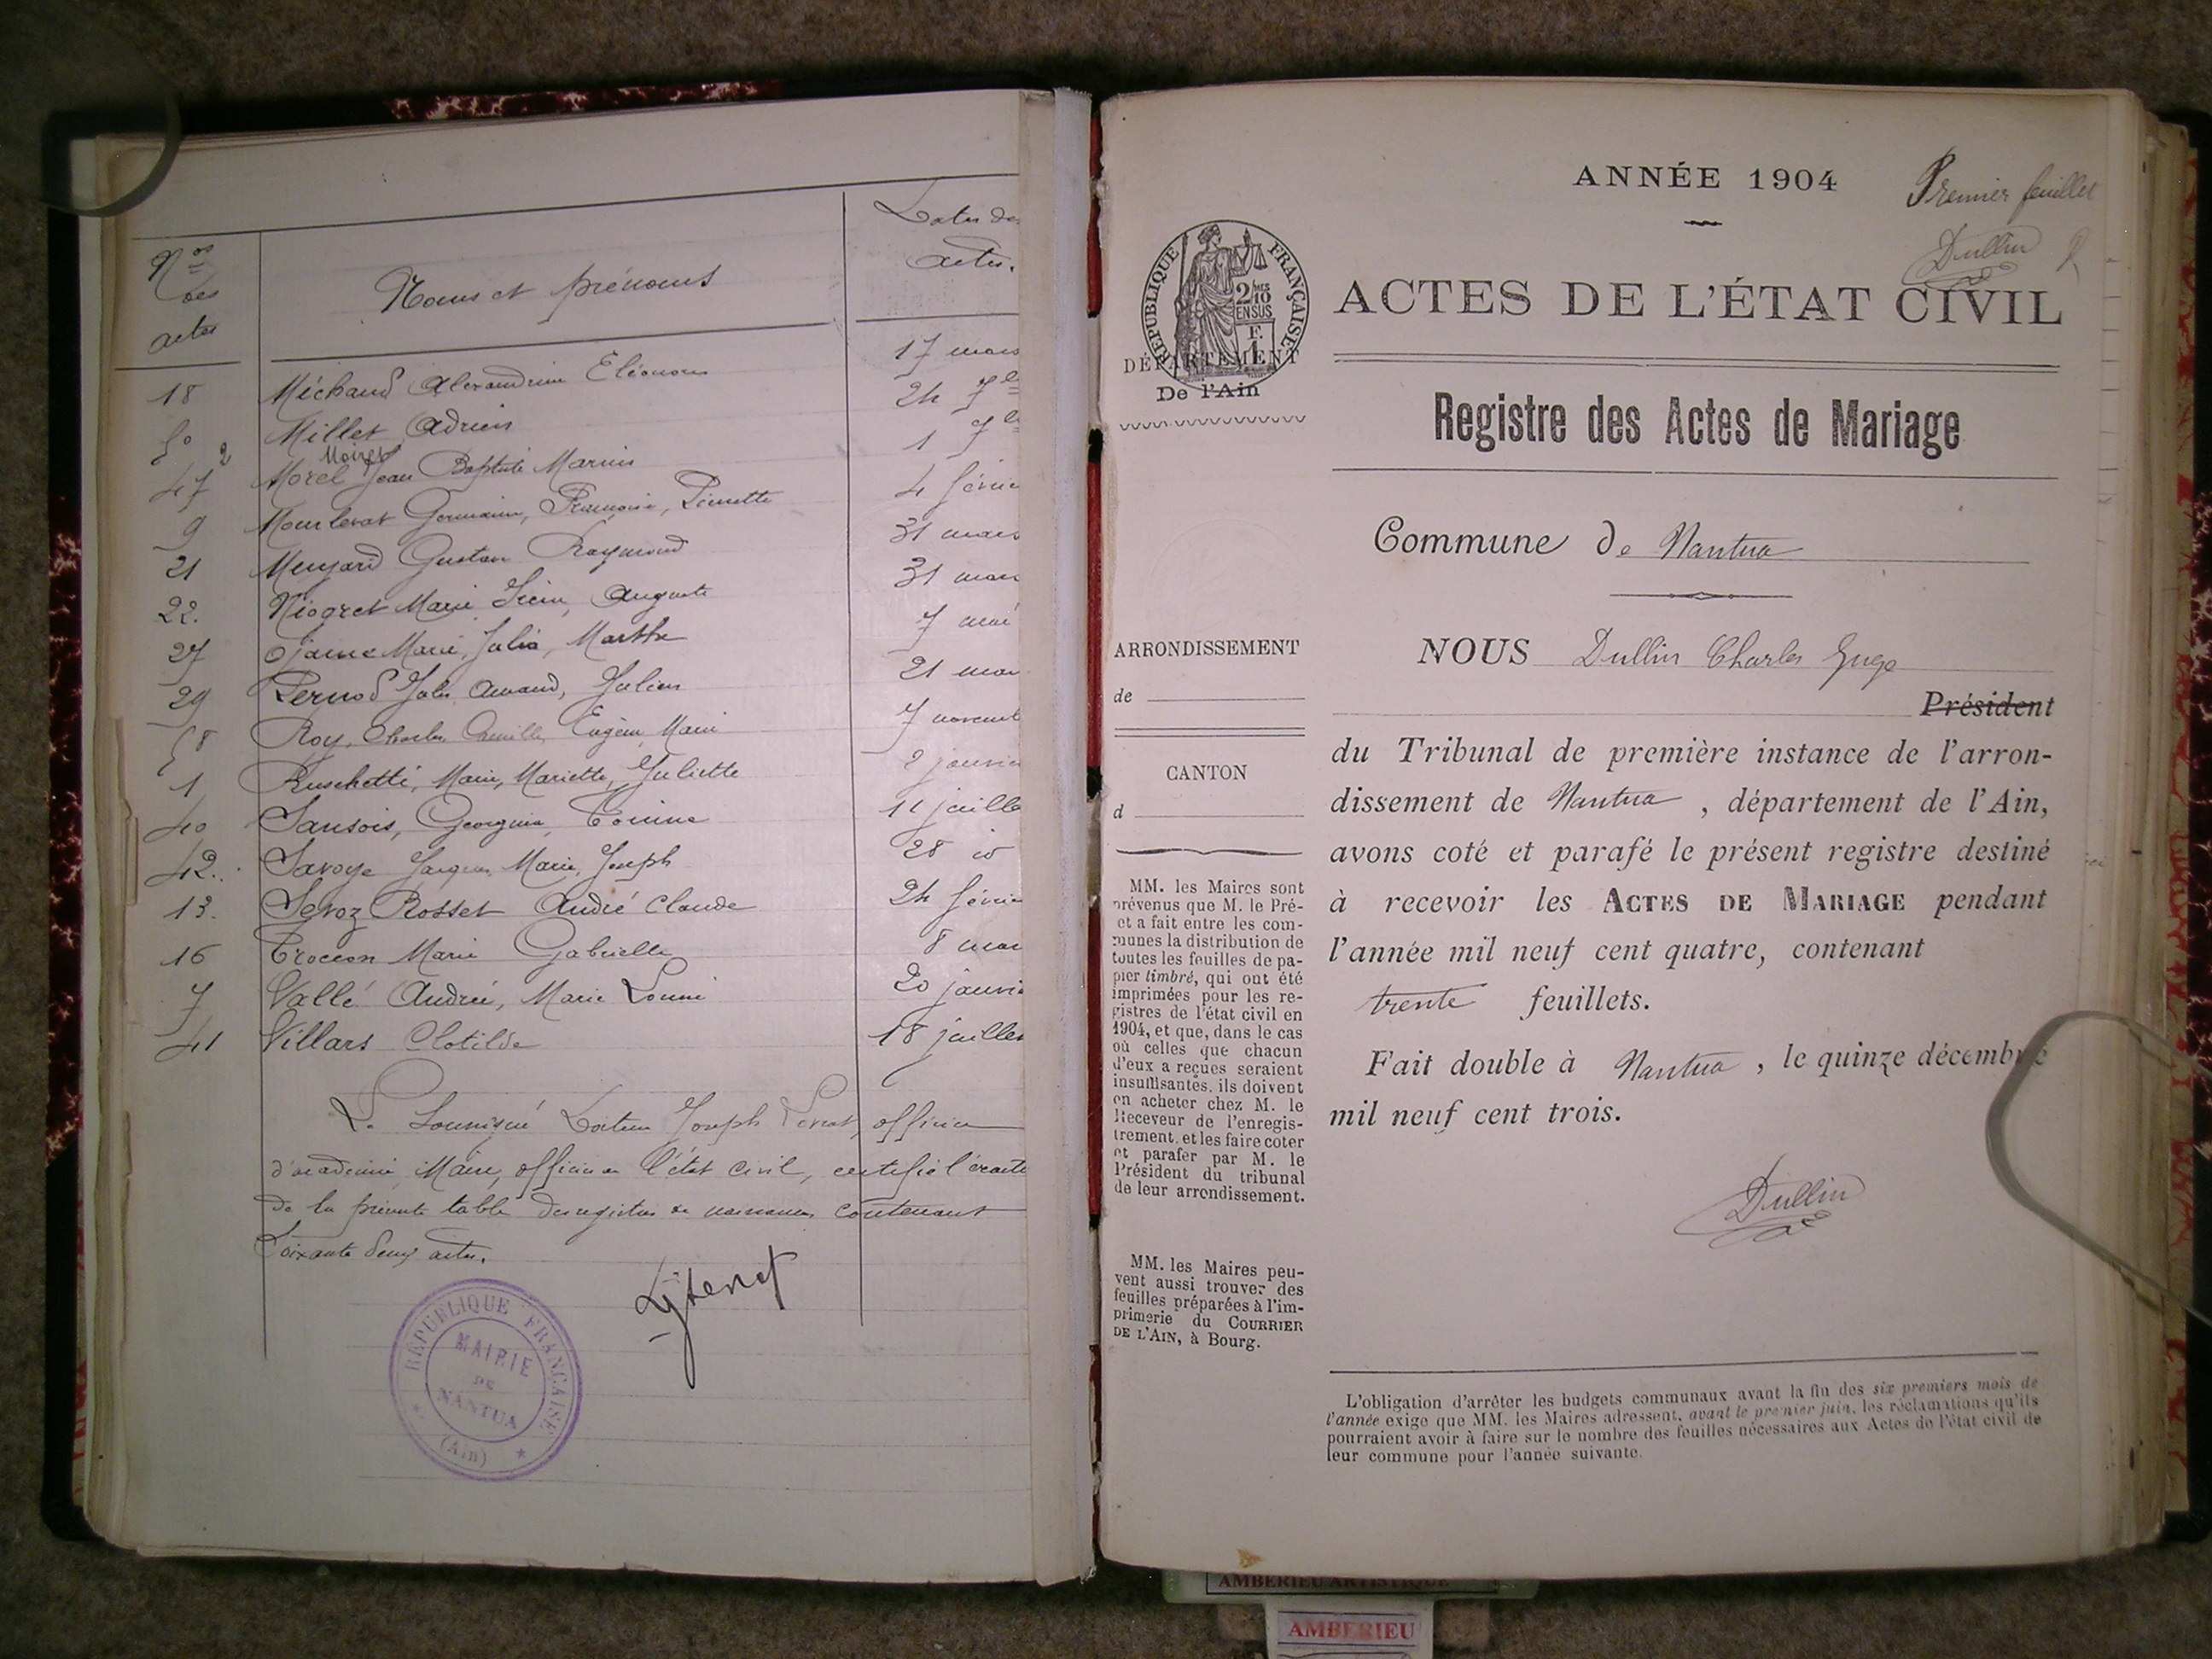 Nos des actes
Noms et prénoms
Dates des actes.
18 Méchaud Alexandrine Eléonore 17 mars
50 Millet Adrien 24 7b
47 2 Morel Moirez Jean Baptiste Marius 1 7b
9 Germaine, Françoise, Pierrette 4 févrie
21 Gustave Raymond 31 mars
22. Niogret Marie Auguste 31 mars
27 Marie, Julia, Marthe 7 mai
29 Pernod Jules Armand, Julien 21 mai
58 Roy, Charles Camille Eugène Marie 7 novemb
1 Ruschetti, Marie, Mariette, Juliette 2 janvie
40 Sansois, Georgina 11 juille
42. Savoye Jacques Marie, Joseph 28 io
13. Servoz Rosset André Claude 24 févrie
16 Croccon Marie Gabrielle 8 mar
7 Vallé Andrée, Marie Louise 20 janvie
41 Villars Clotilde 18 juillet
Le Soussigné Docteur Joseph officier
d'académie, Maire, officier de l'état civil, certifie l'exacte
de la présente table des registres de naissances contenant
Soixante deux actes.
RÉPUBLIQUE FRANÇAISE
MAIRIE
DE
NANTUA
(Ain)
ANNÉE 1904
Premier feuillet
Dullin P
RÉPUBLIQUE FRANÇAISE
2/10
EN SUS
F.
1
ACTES DE L'ÉTAT CIVIL
DÉPARTEMENT
De l'Ain
Registre des Actes de Mariage
Commune de Nantua
ARRONDISSEMENT
de
CANTON
d
MM. les Maires sont
prévenus que M. le Pré-
et a fait entre les com-
munes la distribution de
toutes les feuilles de pa-
pier timbré, qui ont été
imprimées pour les re-
gistres de l'état civil en
1904, et que, dans le cas
où celles que chacun
d'eux a reçues seraient
insuffisantes, ils doivent
en acheter chez M. le
Receveur de l'enregis-
trement, et les faire coter
et parafer par M. le
Président du tribunal
de leur arrondissement.
MM. les Maires peu-
vent aussi trouver des
feuilles préparées à l'im-
primerie du COURRIER
DE L'AIN, à Bourg.
NOUS Dullin Charles Hugo
Président
du Tribunal de première instance de l'arron-
dissement de Nantua , département de l'Ain,
avons coté et parafé le présent registre destiné
à recevoir les ACTES DE MARIAGE pendant
l'année mil neuf cent quatre, contenant
trente feuillets.
Fait double à Nantua , le quinze décembre
mil neuf cent trois.
Dullin
L'obligation d'arrêter les budgets communaux avant la fin des six premiers mois de
l'année exige que MM. les Maires adressent, avant le premier juin, les réclamations qu'ils
pourraient avoir à faire sur le nombre des feuilles nécessaires aux Actes de l'état civil de
leur commune pour l'année suivante.
AMBERIEU ARTISTIQUE
AMBERIEU